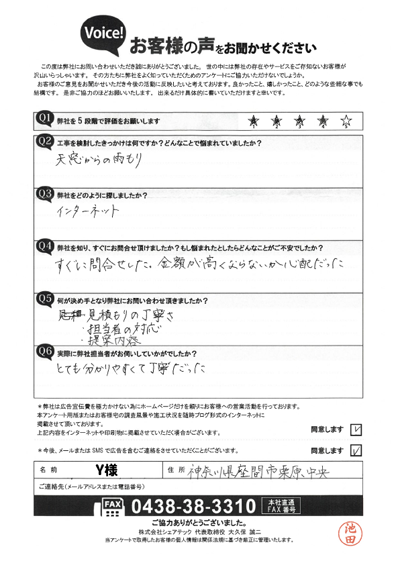 Voice!
お客様の声をお聞かせください
この度は弊社にお問い合わせいただき誠にありがとうございました。世の中には弊社の存在やサービスをご存知ないお客様が
沢山いらっしゃいます。その方たちに弊社をよく知っていただくためのアンケートにご協力いただけないでしょうか。
お客様のご意見をお聞かせいただき今後の活動に反映したいと考えております。良かったこと、嬉しかったこと、どのような些細な事でも
結構です。是非ご協力のほどお願いいたします。出来るだけ具体的に書いていただけますと幸いです。
Q1 弊社を5段階で評価をお願いします ★ ★ ★ ★ ☆
Q2 工事を検討したきっかけは何ですか？どんなことで悩まれていましたか？
天窓からの雨もり
Q3 弊社をどのように探しましたか？
インターネット
Q4 弊社を知り、すぐにお問合せ頂けましたか？もし悩まれたとしたらどんなことがご不安でしたか？
すぐに問合せした。金額が高くならないか心配だった
Q5 何が決め手となり弊社にお問い合わせ頂きましたか？
・見積もりの丁寧さ
・担当者の対応
・提案内容
Q6 実際に弊社担当者がお伺いしていかがでしたか？
とても分かりやすくて丁寧だった
＊弊社は広告宣伝費を極力かけない為にホームページだけを頼りにお客様への営業活動を行っております。
本アンケート用紙またはお客様宅の調査風景や施工状況を随時ブログ形式のインターネットに
掲載させて頂いております。
上記内容をインターネットや印刷物に掲載させていただく場合がございます。 同意します ☑
＊今後、メールまたはSMSで広告を含むご連絡をさせていただくことがございます。 同意します ☑
名前 Y様 住所 神奈川県座間市栗原中央
ご連絡先(メールアドレスまたは電話番号)
FAX 0438-38-3310 本社直通 FAX番号
ご協力ありがとうございました。
株式会社シェアテック 代表取締役 大久保 誠二
当アンケートで取得したお客様の個人情報は関係法規に基づき厳正に管理いたします。
池田